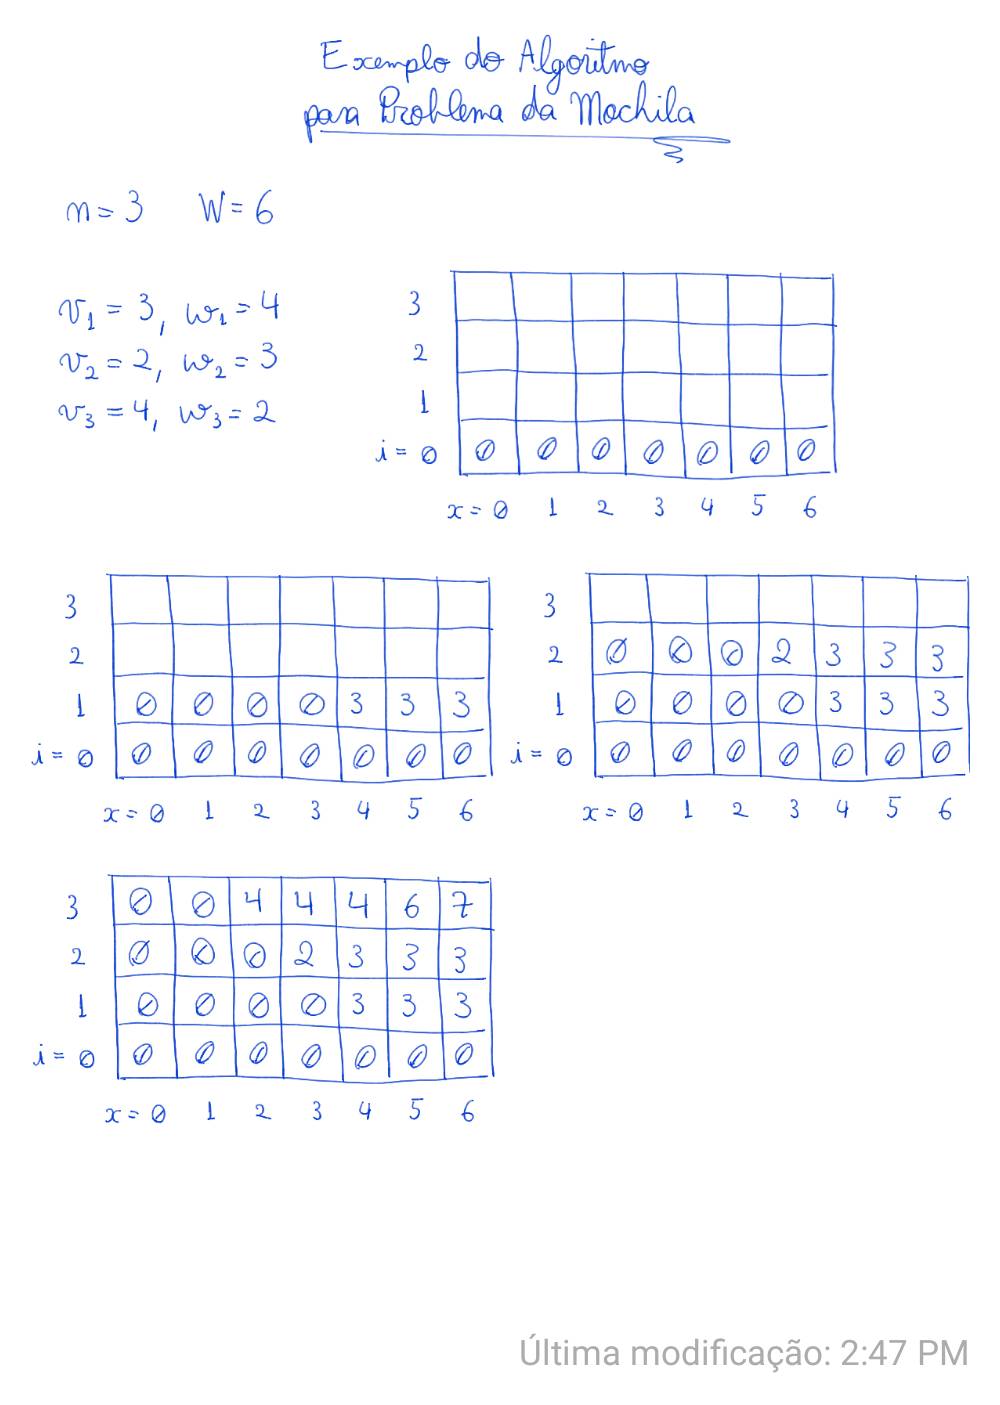 Exemplo do Algoritmo
para Problema da Mochila
n = 3 W = 6
v1 = 3, w1 = 4
v2 = 2, w2 = 3
v3 = 4, w3 = 2
3
2
1
i = 0 0 0 0 0 0 0 0
x = 0 1 2 3 4 5 6
3
2
1 0 0 0 0 3 3 3
i = 0 0 0 0 0 0 0 0
x = 0 1 2 3 4 5 6
3
2 0 0 0 2 3 3 3
1 0 0 0 0 3 3 3
i = 0 0 0 0 0 0 0 0
x = 0 1 2 3 4 5 6
3 0 0 4 4 4 6 7
2 0 0 0 2 3 3 3
1 0 0 0 0 3 3 3
i = 0 0 0 0 0 0 0 0
x = 0 1 2 3 4 5 6
Última modificação: 2:47 PM